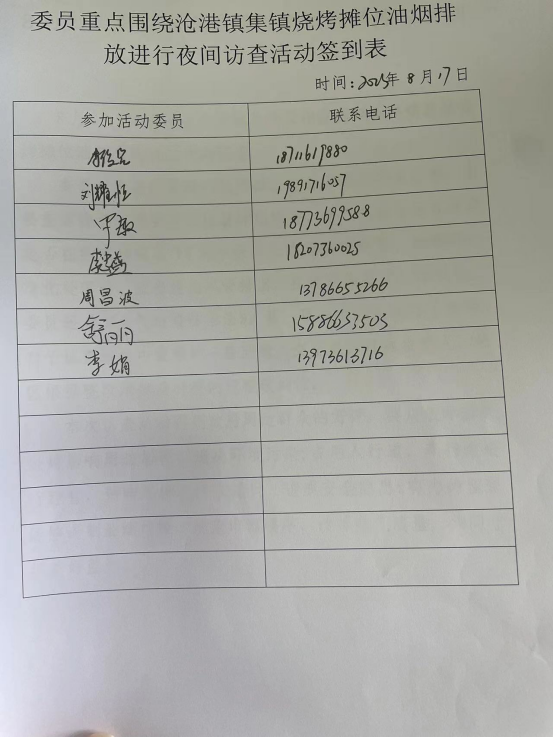 委员重点围绕沧港镇集镇烧烤摊位油烟排
放进行夜间访查活动签到表
时间：2025年 8 月 17 日
参加活动委员 联系电话
18711619880
刘耀恒 19891716057
18773699588
18207360025
周昌波 13786655266
15886653503
李娟 13973613716